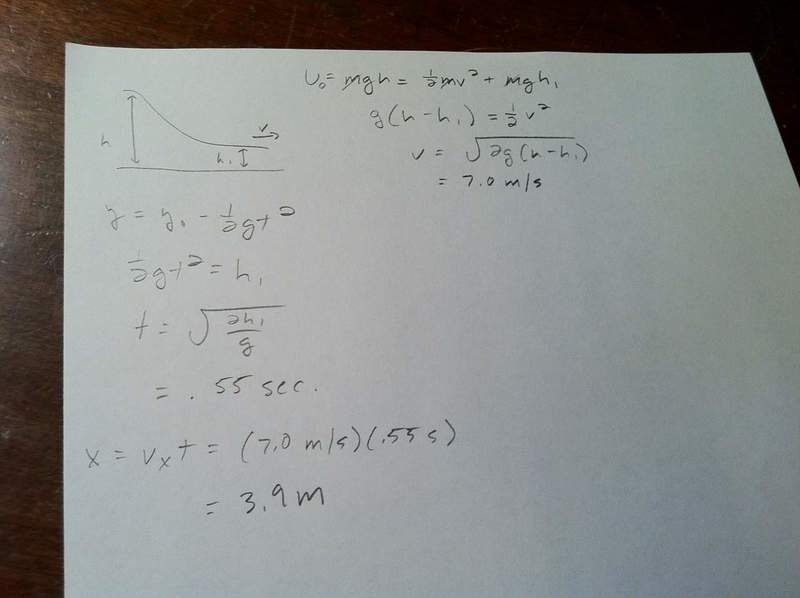 U₀ = mgh = ½mv² + mgh₁
g(h - h₁) = ½v²
v = √2g(h-h₁)
= 7.0 m/s
h
v
h₁
y = y₀ - ½gt²
½gt² = h₁
t = √2h₁/g
= .55 sec.
x = vₓt = (7.0 m/s)(.55 s)
= 3.9 m